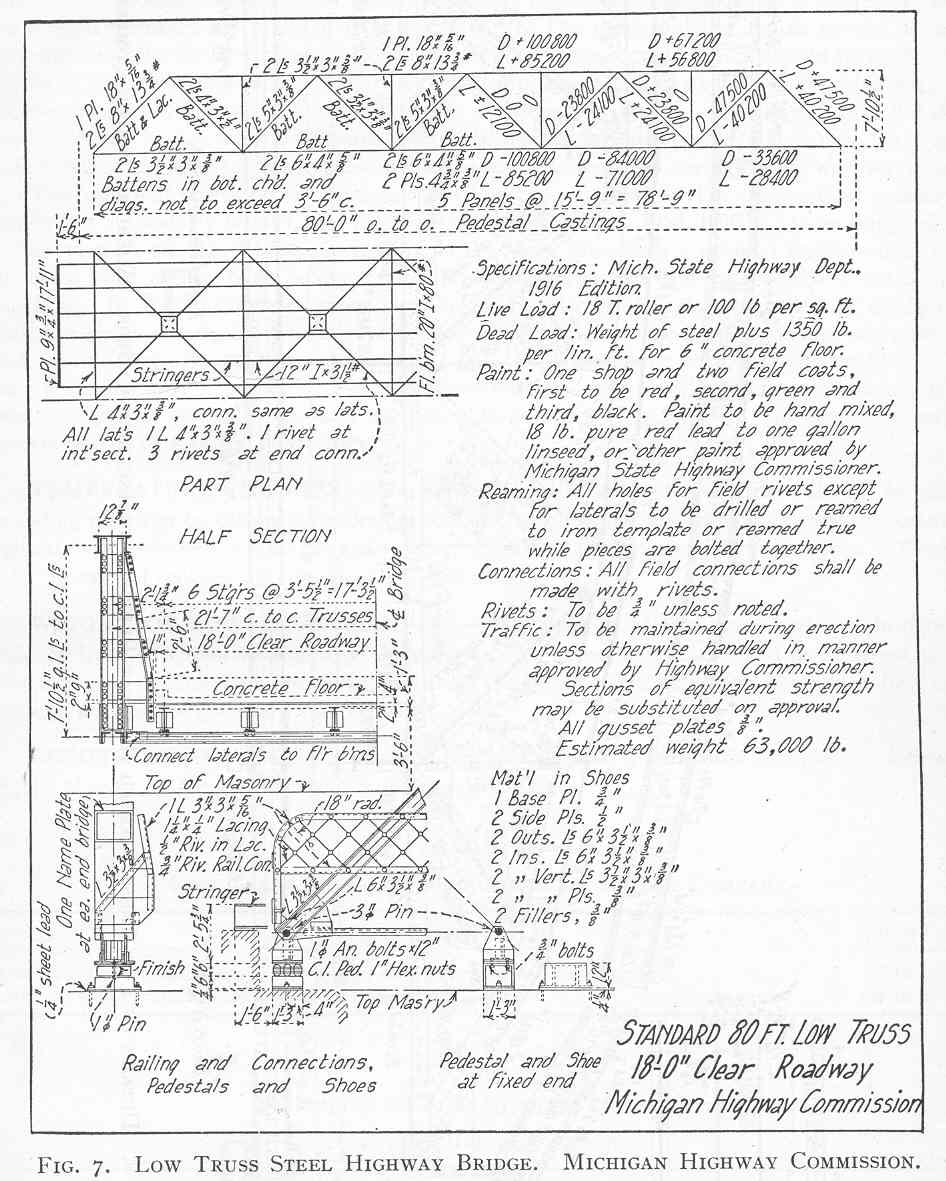 1 Pl. 18"x 5/16"
2 Ls 8"x 13 3/4#
Batt. & Lac.
2 Ls 4"x 3"x 3/8"
Batt.
2 Ls 3 1/2"x 3"x 3/8"
2 Ls 5"x 3"x 3/8"
Batt.
2 Ls 5"x 3"x 3/8"
Batt.
1 Pl. 18"x 5/16"
2 Ls 8"x 13 3/4#
D + 100800
L + 85200
D + 67200
L + 56800
D 0
L ± 12100
0
D -23800
L -24100
D +23800
L +24100
D -47500
L -40200
D +47500
L +40200
7'-10 1/2"
Batt.
Batt
Batt.
2 Ls 3 1/2"x 3"x 3/8"
2 Ls 6"x 4"x 5/8"
2 Ls 6"x 4"x 5/8"
2 Pls. 4 3/4"x 3/8"
D -100800
L -85200
D -84000
L -71000
D -33600
L -28400
Battens in bot. ch'd. and
diags. not to exceed 3'-6" c.
5 Panels @ 15'-9" = 78'-9"
1'-6"
80'-0" o. to o. Pedestal Castings
Pl. 9"x 3/4"x 17'-11"
Stringers
12" I x 31 1/2#
Fl. bm. 20" I x 80#
L 4"x 3"x 3/8", conn. same as lats.
All lat's 1 L 4"x 3"x 3/8". 1 rivet at
int'sect. 3 rivets at end conn.
PART PLAN
Specifications: Mich. State Highway Dept.,
1916 Edition.
Live Load: 18 T. roller or 100 lb per sq. ft.
Dead Load: Weight of steel plus 1350 lb.
per lin. ft. for 6" concrete floor.
Paint: One shop and two field coats,
first to be red, second, green and
third, black. Paint to be hand mixed,
18 lb. pure red lead to one gallon
linseed, or other paint approved by
Michigan State Highway Commissioner.
Reaming: All holes for field rivets except
for laterals to be drilled or reamed
to iron template or reamed true
while pieces are bolted together.
Connections: All field connections shall be
made with rivets.
Rivets: To be 3/4" unless noted.
Traffic: To be maintained during erection
unless otherwise handled in manner
approved by Highway Commissioner.
Sections of equivalent strength
may be substituted on approval.
All gusset plates 3/8".
Estimated weight 63,000 lb.
12 1/8"
HALF SECTION
7'-10 1/2" g. Ls to c. Ls
2'-1 3/4"
6 St'grs @ 3'-5 1/2" = 17'-3 1/2"
21'-7" c. to c. Trusses
18'-0" Clear Roadway
2'-6"
1"
2"
9"
Concrete Floor
℄ Bridge
1'-3"
4"
2"
3'-6"
Connect laterals to fl'r b'ms
Top of Masonry
One Name Plate
at ea. end bridge,
1 L 3"x 3"x 5/16"
1 1/4"x 1/4" Lacing
1/2" Riv. in Lac.
Riv. Rail. Con.
18" rad.
Stringer
L 6"x 3 1/2"x 3/8"
3"⌀ Pin
1/4" sheet lead
Finish
2'-5 3/4"
1"⌀ An. bolts x 12"
C.I. Ped. 1" Hex. nuts
3/4" bolts
12"
4"
Top Mas'ry
1"⌀ Pin
1'-6"
1'-3"
4"
1'-3"
Mat'l in Shoes
1 Base Pl. 3/4"
2 Side Pls. 1/2"
2 Outs. Ls 6"x 3 1/2"x 3/8"
2 Ins. Ls 6"x 3 1/2"x 3/8"
2 " Vert. Ls 3 1/2"x 3"x 3/8"
2 " " Pls. 3/8"
2 Fillers, 3/8"
Railing and Connections,
Pedestals and Shoes
Pedestal and Shoe
at fixed end
STANDARD 80 FT. LOW TRUSS
18'-0" Clear Roadway
Michigan Highway Commission
FIG. 7. LOW TRUSS STEEL HIGHWAY BRIDGE. MICHIGAN HIGHWAY COMMISSION.